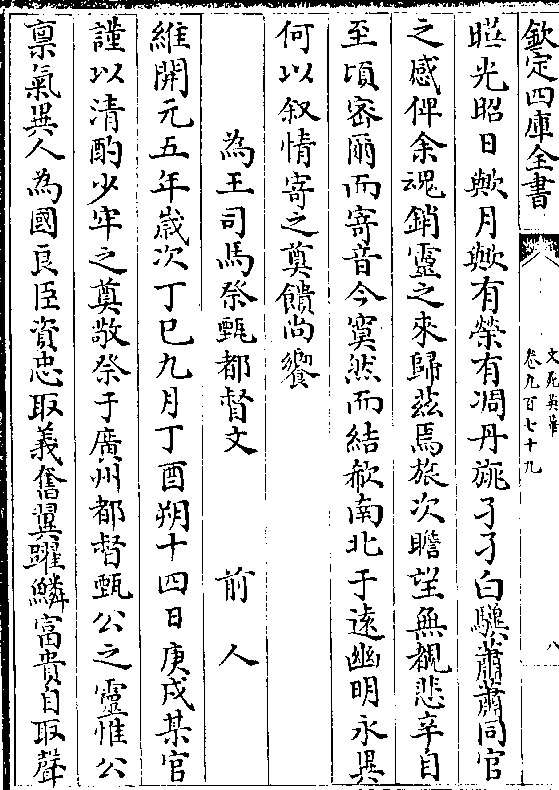 欽定四庫全書
文苑英華
卷九百七十九
八
晤光昭日歟月歟有榮有凋丹旐孑孑白驥蕭蕭同官
之感俾余魂銷靈之來歸兹焉旅次瞻望無覩悲辛自
至頃密爾而寄音今寞然而結欷南北于遠幽明永異
何以叙情寄之奠饋尚饗
為王司馬祭甄都督文 前人
維開元五年歲次丁巳九月丁酉朔十四日庚戌某官
謹以清酌少牢之奠敬祭于廣州都督甄公之靈惟公
禀氣異人為國良臣資忠取義奮翼躍鱗富貴自取聲